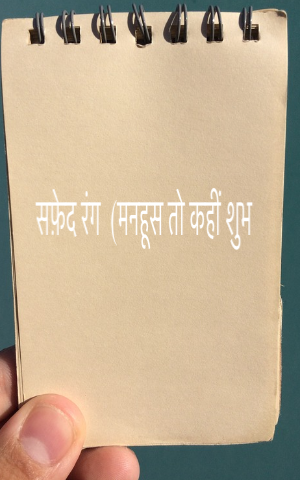 सफ़ेद रंग (मनहूस तो कहीं शुभ